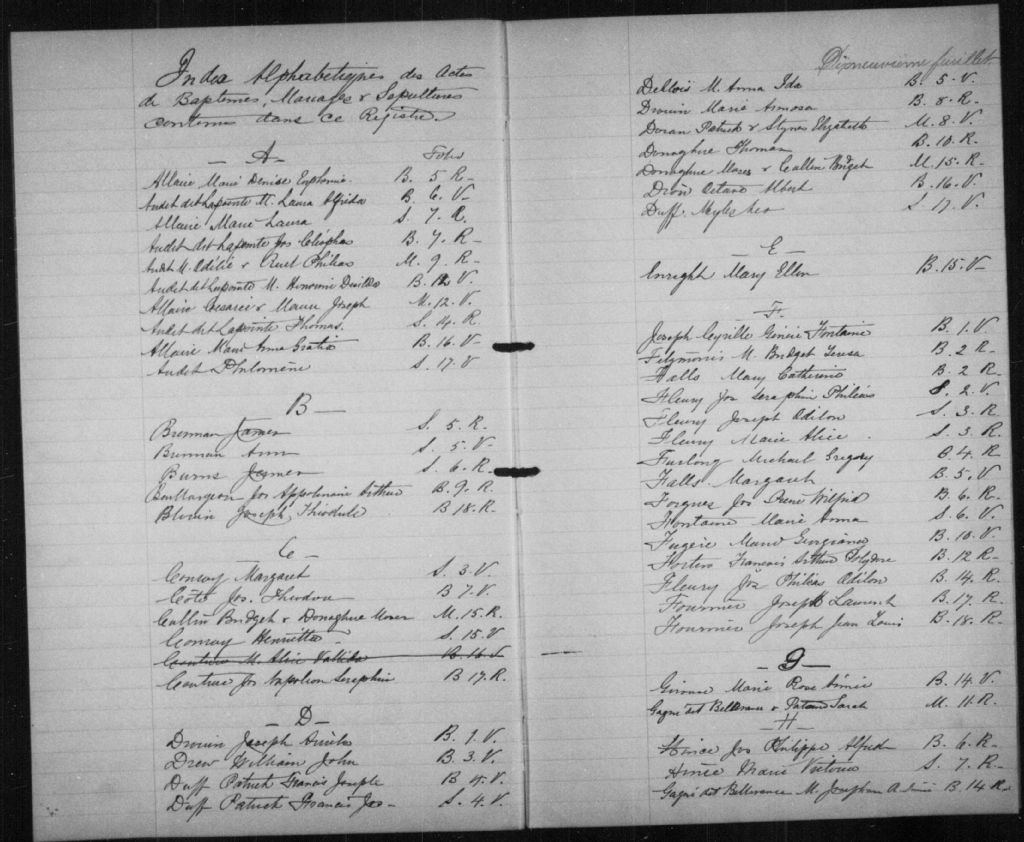 Index Alphabetiques des Actes
de Baptemes, Mariages & Sepultures
contenus dans ce Registre.
— A — Folio
Allaire Marie Denise Euphemie B. 5 R.
Audet dit Lapointe M. Laura Alfrida B. 6. V.
Allaire Marie Laura S. 7. R.
Audet dit Lapointe Jos Cléophas B. 7. R.
Audet M. Odélie & Ruel Philias M. 9. R.
Audet dit Lapointe M. B. 12 V.
Allaire & Joseph M. 12. V.
Audet dit Lapointe Thomas. S. 14. R.
Allaire Marie Anna Gratia B. 16. V
Audet Philomene S. 17. V
B —
Brennan James S. 5. R.
Brennan Ann S. 5. V.
Burns James S. 6. R.
Jos Appolinaire Arthur B. 9. R.
Blouin Joseph, Théodule B 18. R.
C —
Conway Margaret S. 3. V.
Coté Jos. Théodore B 7. V.
Cullin Bridget & Donaghue Moses M. 15. R.
Conway Henrietta S. 15. V
Couture M. Alice B. 16
Couture Jos Napoléon Seraphin B 17. R.
— D —
Drouin Joseph B. 1. V.
Drew William John B. 3. V.
Duff Patrick Francis Joseph B 4. V.
Duff Patrick Francis Jos — S. 4. V.
Dixneuvieme feuillet
Deblois M. Anna Ida B. 5. V.
Drouin Marie B. 8. R.
Doran Patrick & Stynes Elizabeth M. 8. V.
Donaghue Thomas B. 10. R.
Donaghue Moses & Cullin Bridget M. 15. R.
Octave Albert B. 16. V.
Duff Myles Leo S. 17. V.
— E —
Enright Mary Ellen B. 15. V
— F —
Joseph Cyrille Fontaine B. 1. V.
Fitzmorris M. Bridget Teresa B. 2 R.
Falls Mary Catherine B. 2 R.
Fleury Jos Seraphin Philias S. 2. V.
Fleury Joseph Odilon S. 3. R
Fleury Marie Alice S. 3. R.
Furlong Michael Gregory B 4. R.
Falls Margaret B. 5. V
Forgues Jos Wilfrid B. 6. R.
Fontaine Marie Anna S. 6. V.
Fugère Marie Georgiana B. 10. V
Fortier Francois Arthur Polydore B. 12 R.
Fleury Jos Philias Odilon B. 14. R.
Fournier Joseph Laurent B. 17. R.
Fournier Joseph Jean Louis B. 18. R.
— G —
Giroux Marie Rose Aimée B. 14. V.
Gagné dit Bellavance & Sarah M. 11. R.
— H —
Jos Philippe Alfred B. 6. R.
Marie Victoria S. 7. R.
Gagné dit Bellavance M. B. 14 R.